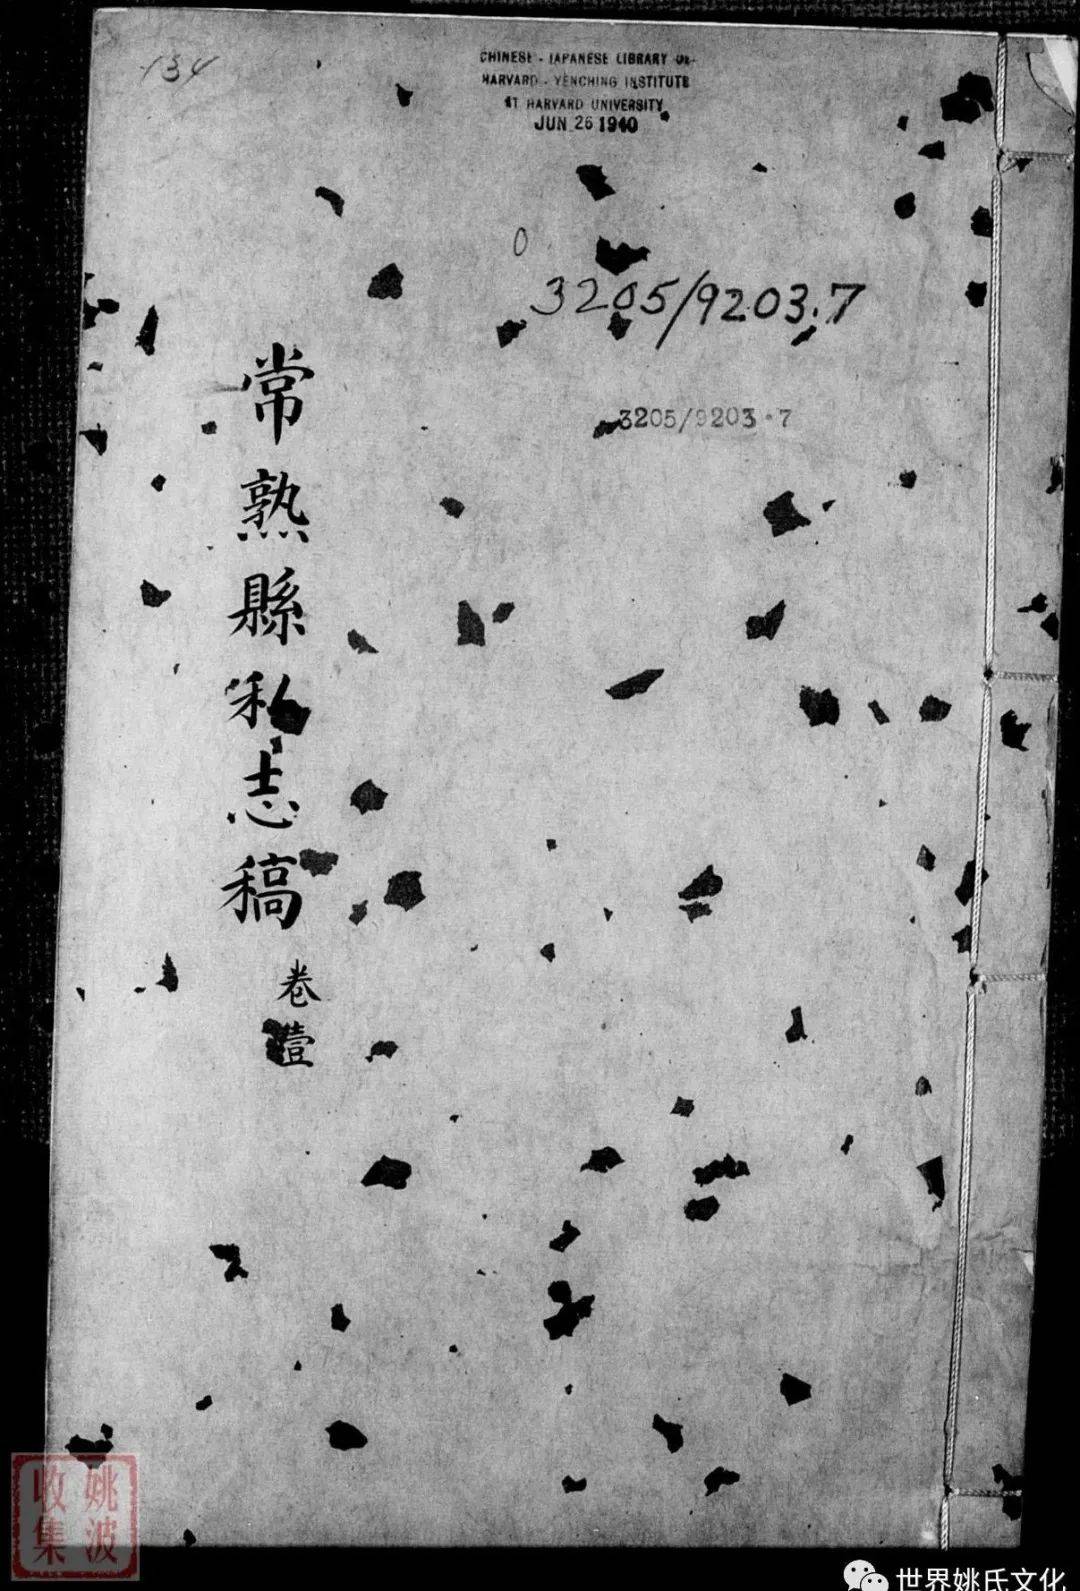 134
CHINESE - JAPANESE LIBRARY OF
HARVARD - YENCHING INSTITUTE
AT HARVARD UNIVERSITY
JUN 26 1940
0
3205/9203.7
3205/9203·7
常熟縣私志稿
卷壹
姚波
收集
世界姚氏文化